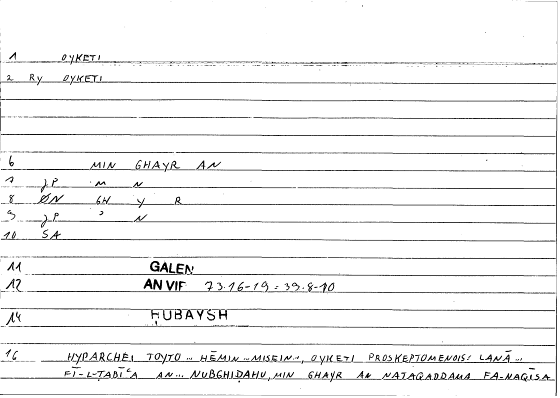 1 OYKETI
2 Ry OYKETI
6 MIN GHAYR AN
7 JP M N
8 ØN GH Y R
9 JP ' N
10 SA
11 GALEN
12 AN VIF 73.16-19 = 39.8-10
14 ḤUBAYSH
16 HYPARCHEI TOYTO... HĒMIN... MISEIN..., OYKETI PROSKEPTOMENOIS: LANĀ...
FĪ-L-ṬABĪʿA AN... NUBGHIḌAHU, MIN GHAYR AN NATAQADDAMA FA-NAQĪSA